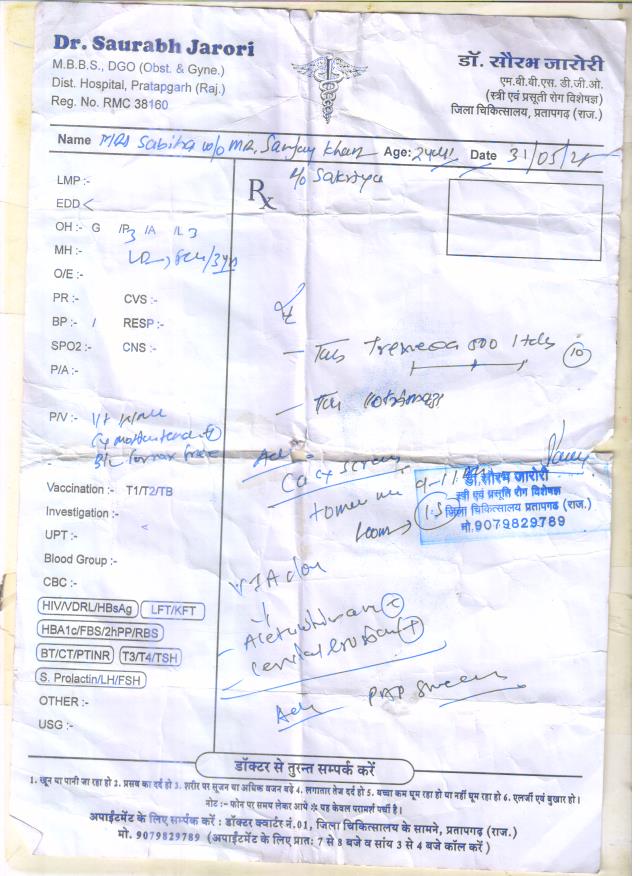 Dr. Saurabh Jarori
M.B.B.S., DGO (Obst. & Gyne.)
Dist. Hospital, Pratapgarh (Raj.)
Reg. No. RMC 38160
डॉ. सौरभ जारोरी
एम.बी.बी.एस. डी.जी.ओ.
(स्त्री एवं प्रसूती रोग विशेषज्ञ)
जिला चिकित्सालय, प्रतापगढ़ (राज.)
Name Mrs Sabina w/o Mr. Sanjay Khan Age: 24 Date 31/05/21
LMP:-
Rx
EDD <
OH:- G /P3 /A /L3
MH:-
O/E:-
PR:- CVS:-
BP:- / RESP:-
SPO2:- CNS:-
Tab 500 1 tds 10
P/A:-
Tab
P/V:-
Adv
Ca cx screen
9-11 AM
Room → 13
डॉ. सौरभ जारोरी
स्त्री एवं प्रसूति रोग विशेषज्ञ
जिला चिकित्सालय प्रतापगढ़ (राज.)
मो. 9079829789
Vaccination:- T1/T2/TB
Investigation:-
UPT:-
Blood Group:-
VIA done
CBC:-
HIV/VDRL/HBsAg LFT/KFT
HBA1c/FBS/2hPP/RBS
BT/CT/PTINR T3/T4/TSH
S. Prolactin/LH/FSH
Adv PAP smear
OTHER:-
USG:-
डॉक्टर से तुरन्त सम्पर्क करें
1. खून या पानी जा रहा हो 2. प्रसव का दर्द हो 3. शरीर पर सूजन या अधिक वजन बढ़े 4. लगातार तेज दर्द हो 5. बच्चा कम घूम रहा हो या नहीं घूम रहा हो 6. एलर्जी एवं बुखार हो।
नोट :- फोन पर समय लेकर आये ※ यह केवल परामर्श पर्ची है।
अपाईंटमेंट के लिए सर्म्पक करें : डॉक्टर क्वार्टर नं.01, जिला चिकित्सालय के सामने, प्रतापगढ़ (राज.)
मो. 9079829789 (अपाईंटमेंट के लिए प्रातः 7 से 8 बजे व सांय 3 से 4 बजे कॉल करें)